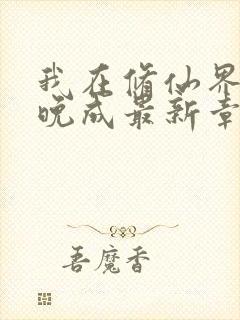 我在修仙界
晚成最新章
吾魔香